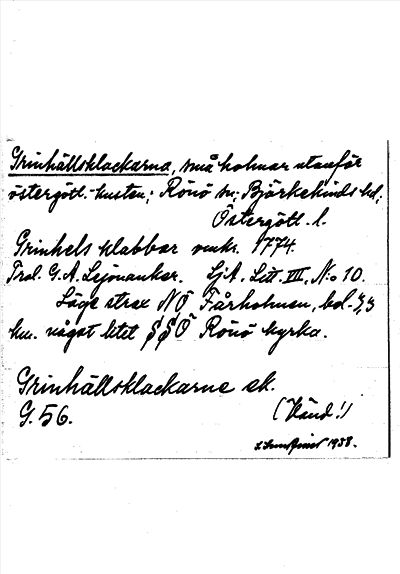 Grinhällsklackarna, små holmar utanför
östergötl.-kusten; Rönö sn; Björkekinds hd;
Östergötl. l.
Grinhels klabbar omkr. 1774.
Trol. G. A. Lejonanker. SjA. Litt. VII, N:o 10.
Läge strax NÖ Fårholmen, bol.
km. något litet Rönö kyrka.
Grinhällsklackarne sk.
G. 56.
(Vänd!)
1938.